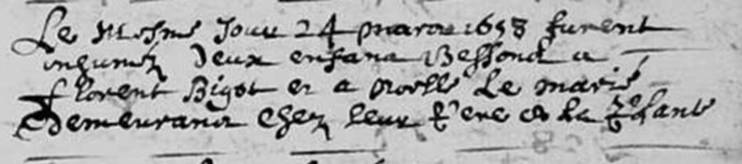 Le mesme Jour 24 mars 1658 furent
inhumez Deux enfans Bessons a
florent Bigot et a noelle Le marié
Demeurans chez leur pere a la